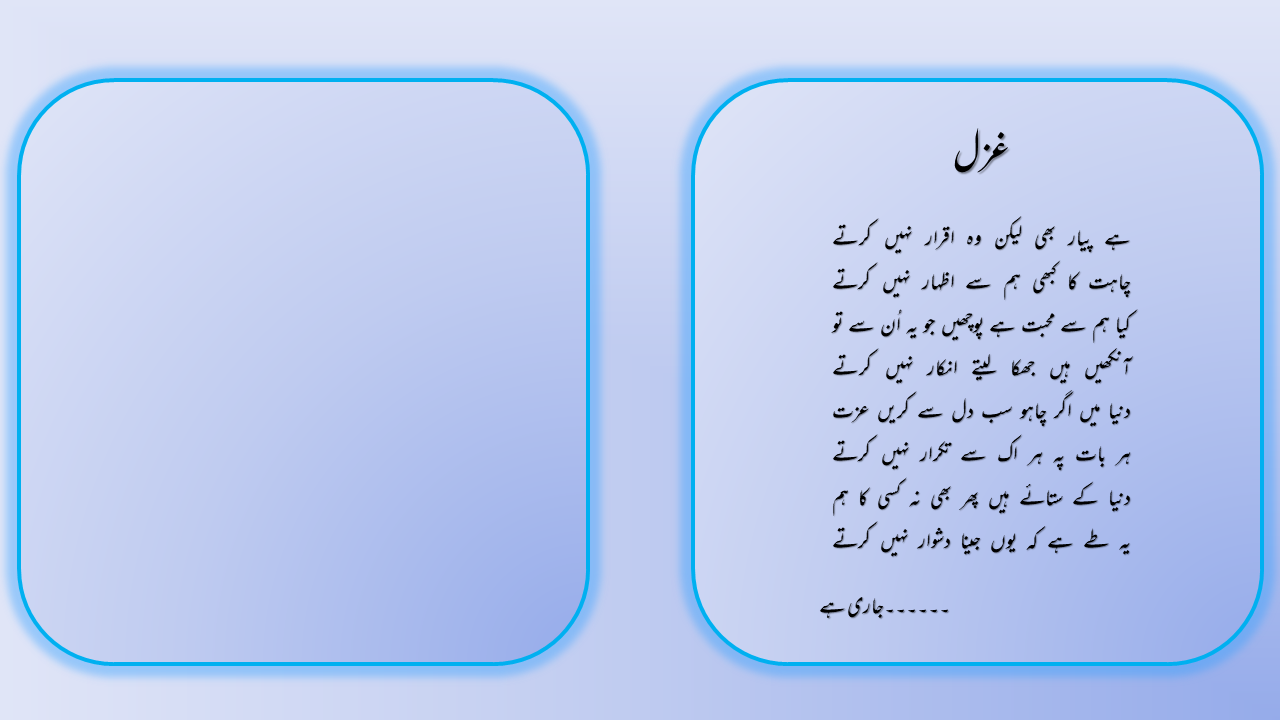 غزل
ہے پیار بھی لیکن وہ اقرار نہیں کرتے
چاہت کا کبھی ہم سے اظہار نہیں کرتے
کیا ہم سے محبت ہے پوچھیں جو یہ اُن سے تو
آنکھیں ہیں جھکا لیتے انکار نہیں کرتے
دنیا میں اگر چاہو سب دل سے کریں عزت
ہر بات پہ ہر اک سے تکرار نہیں کرتے
دنیا کے ستائے ہیں پھر بھی نہ کسی کا ہم
یہ طے ہے کہ یوں جینا دشوار نہیں کرتے
۔۔۔۔۔۔جاری ہے